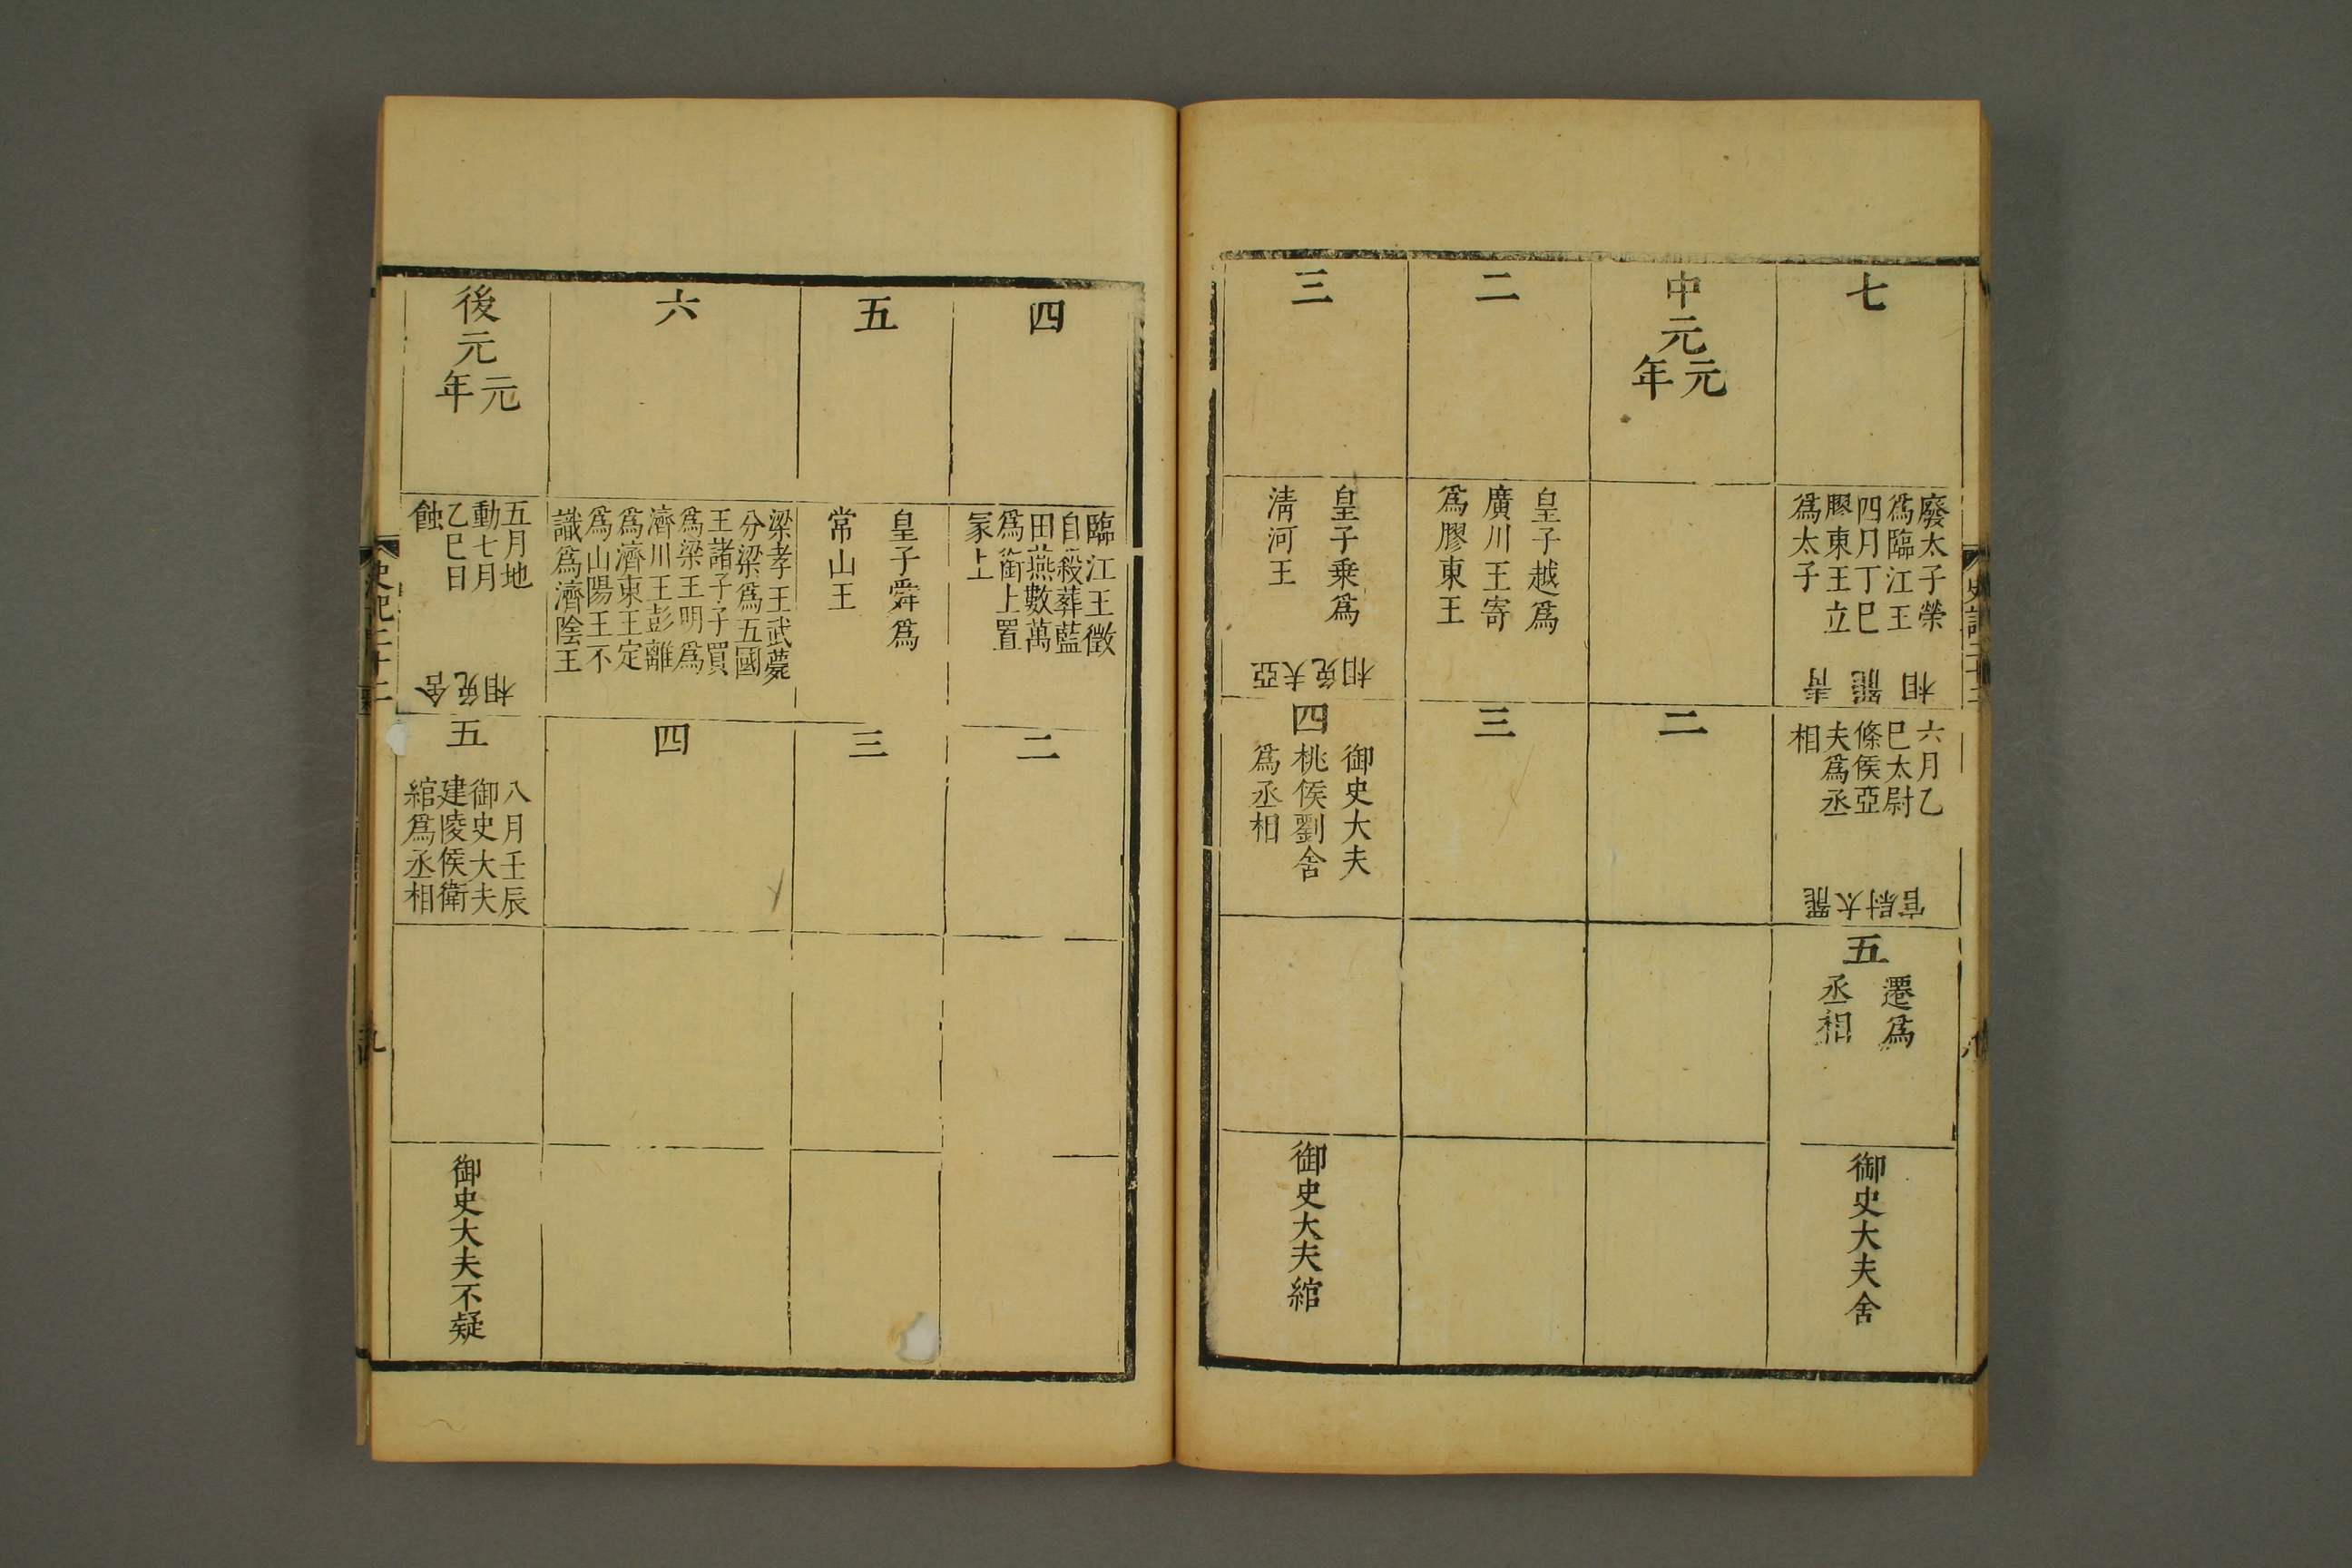 史記二十二
七
廢太子榮
爲臨江王
四月丁巳
膠東王立
爲太子
青罷相
六月乙
巳太尉
條侯亞
夫爲丞
相
罷太尉官
五
遷爲
丞相
御史大夫舍
中元
元
年
二
二
皇子越爲
廣川王寄
爲膠東王
三
三
皇子乗爲
清河王
亞夫免相
四
御史大夫
桃侯劉舍
爲丞相
御史大夫綰
四
臨江王徵
自殺葬藍
田燕數萬
爲銜上置
冢上
二
五
皇子舜爲
常山王
三
六
梁孝王武薨
分梁爲五國
王諸子子買
爲梁王明爲
濟川王彭離
爲濟東王定
爲山陽王不
識爲濟陰王
四
後元
元
年
五月地
動七月
乙巳日
蝕
舍免相
五
八月壬辰
御史大夫
建陵侯衛
綰爲丞相
御史大夫不疑
史記二十二
九